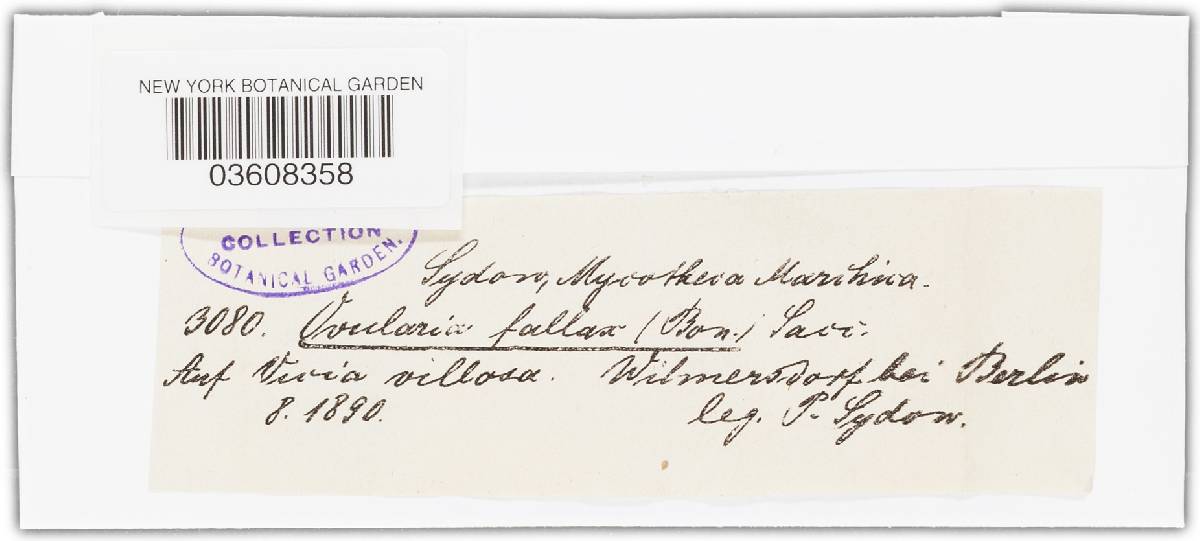 NEW YORK BOTANICAL GARDEN
03608358
COLLECTION
BOTANICAL GARDEN.
Sydow, Mycotheca Marchica.
3080. Ovularia fallax (Bon.) Sacc.
Auf Vicia villosa. Wilmersdorf bei Berlin
8. 1890. leg. P. Sydow.